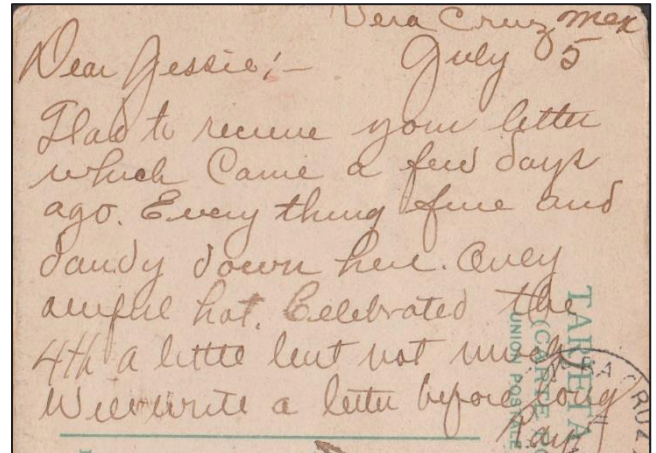 Vera Cruz Mex
Dear Jessie:— July 5
Glad to receive your letter
which Came a few days
ago. Every thing fine and
dandy down here. Only
awful hot. Celebrated the
4th a little but not much
Will write a letter before long
Ray
TARJETA
(CARTE
UNION POSTALE
RA CRUZ